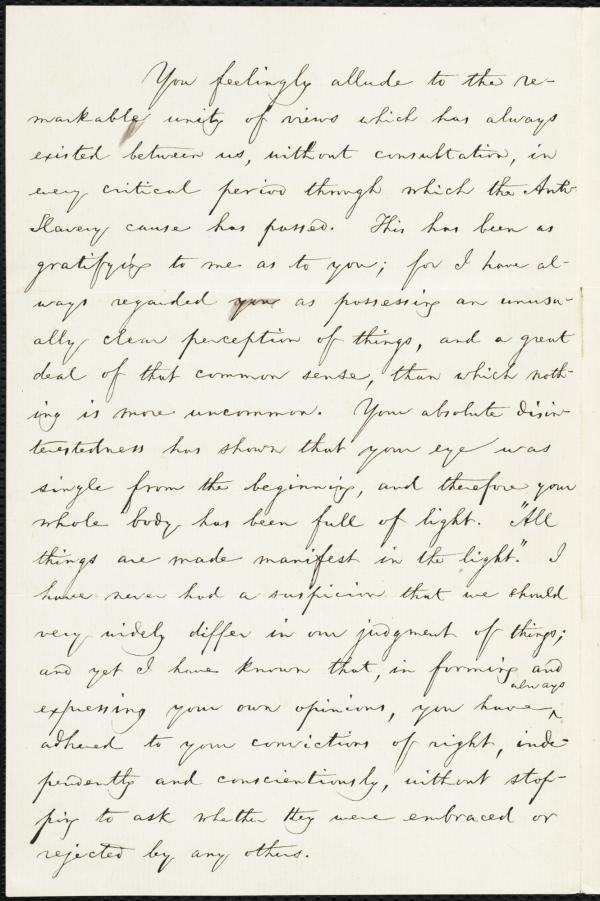 You feelingly allude to the re-
markable unity of views which has always
existed between us, without consultation, in
every critical period through which the Anti-
Slavery cause has passed. This has been as
gratifying to me as to you; for I have al-
ways regarded you as possessing an unusu-
ally clear perception of things, and a great
deal of that common sense, than which noth-
ing is more uncommon. Your absolute disin-
terestedness has shown that your eye was
single from the beginning, and therefore your
whole body has been full of light. "All
things are made manifest in the light." I
have never had a suspicion that we should
very widely differ in our judgment of things;
and yet I have known that, in forming and
expressing your own opinions, you have ^always
adhered to your convictions of right, inde-
pendently and conscientiously, without stop-
ping to ask whether they were embraced or
rejected by any others.